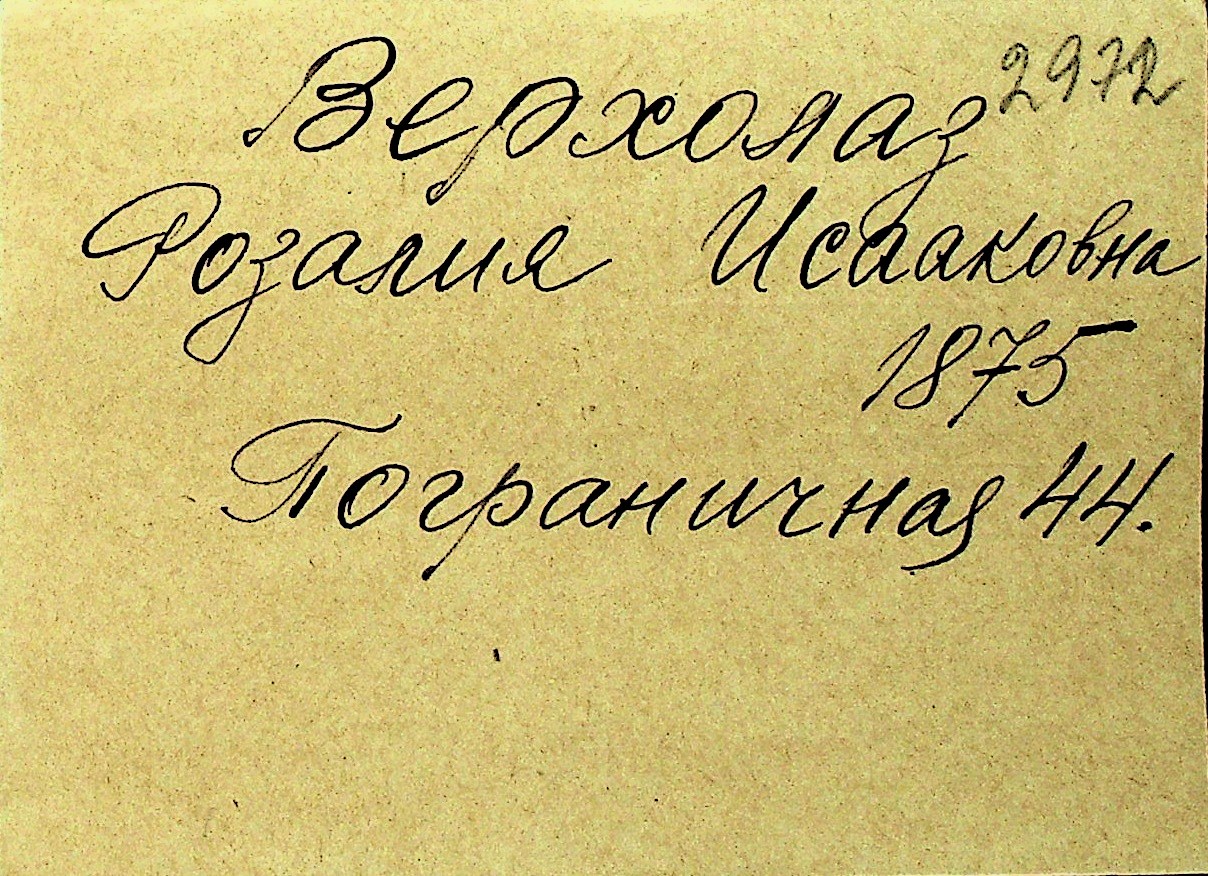 2972
Верхолаз
Розалия Исааковна
1875
Пограничная 44.